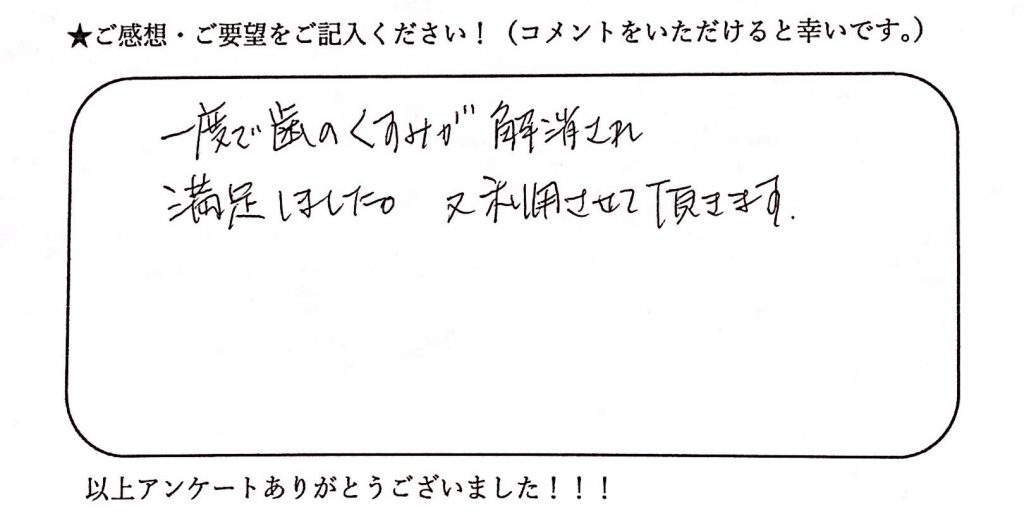 ★ご感想・ご要望をご記入ください！（コメントをいただけると幸いです。）
一度で歯のくすみが解消され
満足しました。 又利用させて頂きます.
以上アンケートありがとうございました！！！